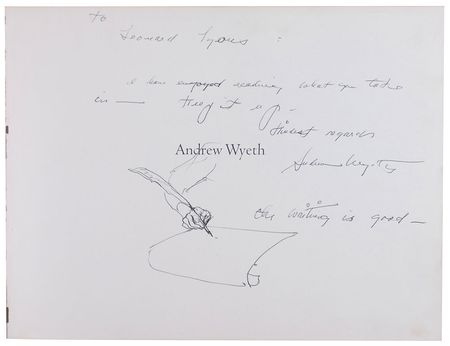 To
Leonard Lyons :
I have enjoyed reading what you
in — it up —
Kindest regards
Andrew Wyeth
Andrew Wyeth
writing is good —